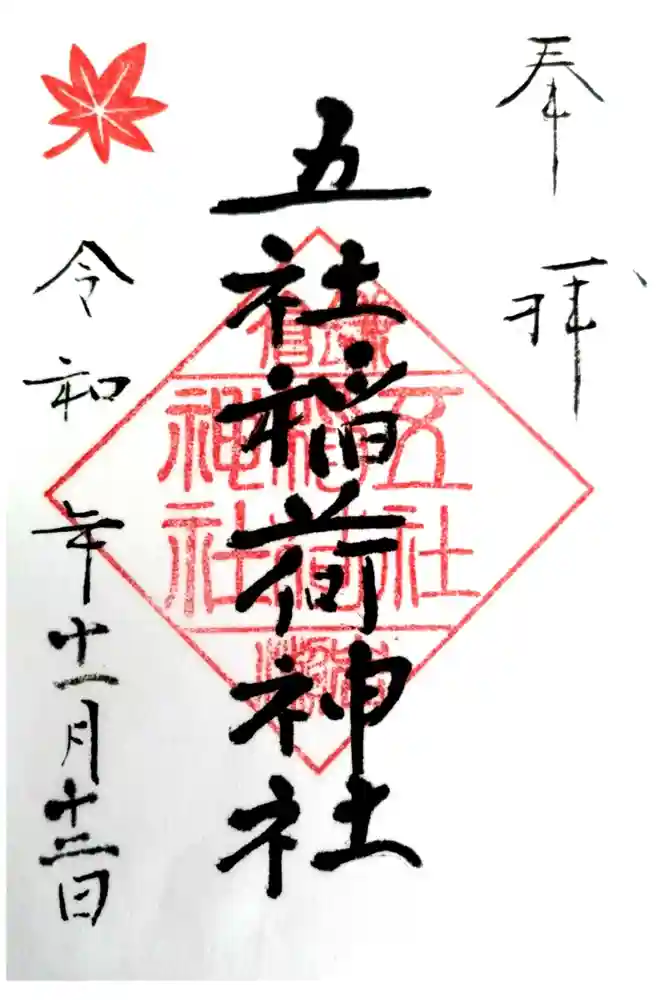 奉拝
五社稲荷神社
五社
稲荷
神社
令和 年十一月十三日